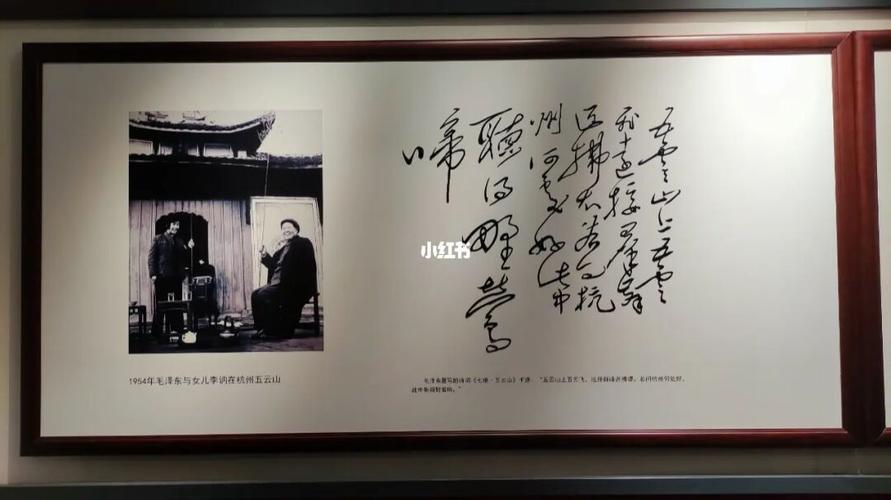 五雲山上五雲
飛遠接羣峰
近拂 若问杭
州何處好此中
聽得野莺
啼
小红书
1954年毛泽东与女儿李讷在杭州五云山
毛泽东 写的诗词《七绝·五云山》手迹：“五云山上五云飞，远接群峰近拂堤。若问杭州何处好，
此中听得野莺啼。”